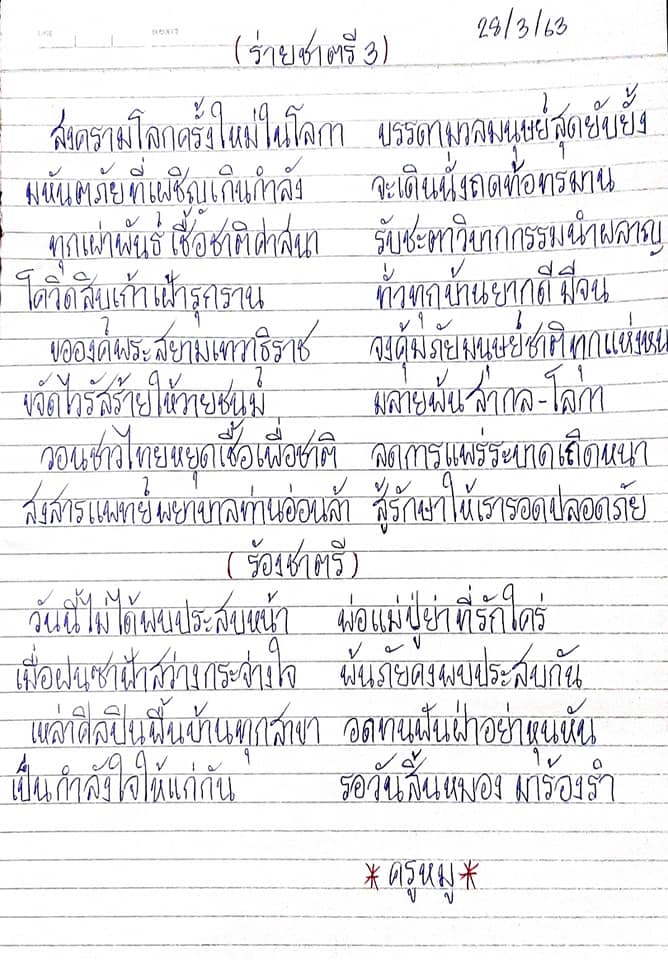 28/3/63
(ร่ายชาตรี 3)
สงครามโลกครั้งใหม่ในโลกา บรรดามวลมนุษย์สุดยับยั้ง
มหันตภัยที่เผชิญเกินกำลัง จะเดินนั่งถดท้อทรมาน
ทุกเผ่าพันธุ์เชื้อชาติศาสนา รับชะตาวิบากกรรมนำผลาญ
โควิดสิบเก้าเฝ้ารุกราน ทั่วทุกบ้านยากดีมีจน
ขอองค์พระสยามเทวาธิราช จงคุ้มภัยมนุษย์ชาติทุกแห่งหน
ขจัดไวรัสร้ายให้วายชนม์ มลายพ้นสากล-โลกา
วอนชาวไทยหยุดเชื้อเพื่อชาติ ลดการแพร่ระบาดเถิดหนา
สงสารแพทย์พยาบาลท่านอ่อนล้า สู้รักษาให้เรารอดปลอดภัย
(ร้องชาตรี)
วันนี้ไม่ได้พบประสบหน้า พ่อแม่ปู่ย่าที่รักใคร่
เมื่อฝนซาฟ้าสว่างกระจ่างใจ พ้นภัยคงพบประสบกัน
เหล่าศิลปินพื้นบ้านทุกสาขา อดทนฟันฝ่าอย่าหุนหัน
เป็นกำลังใจให้แก่กัน รอวันสิ้นหมอง มาร้องรำ
*ครูหมู*